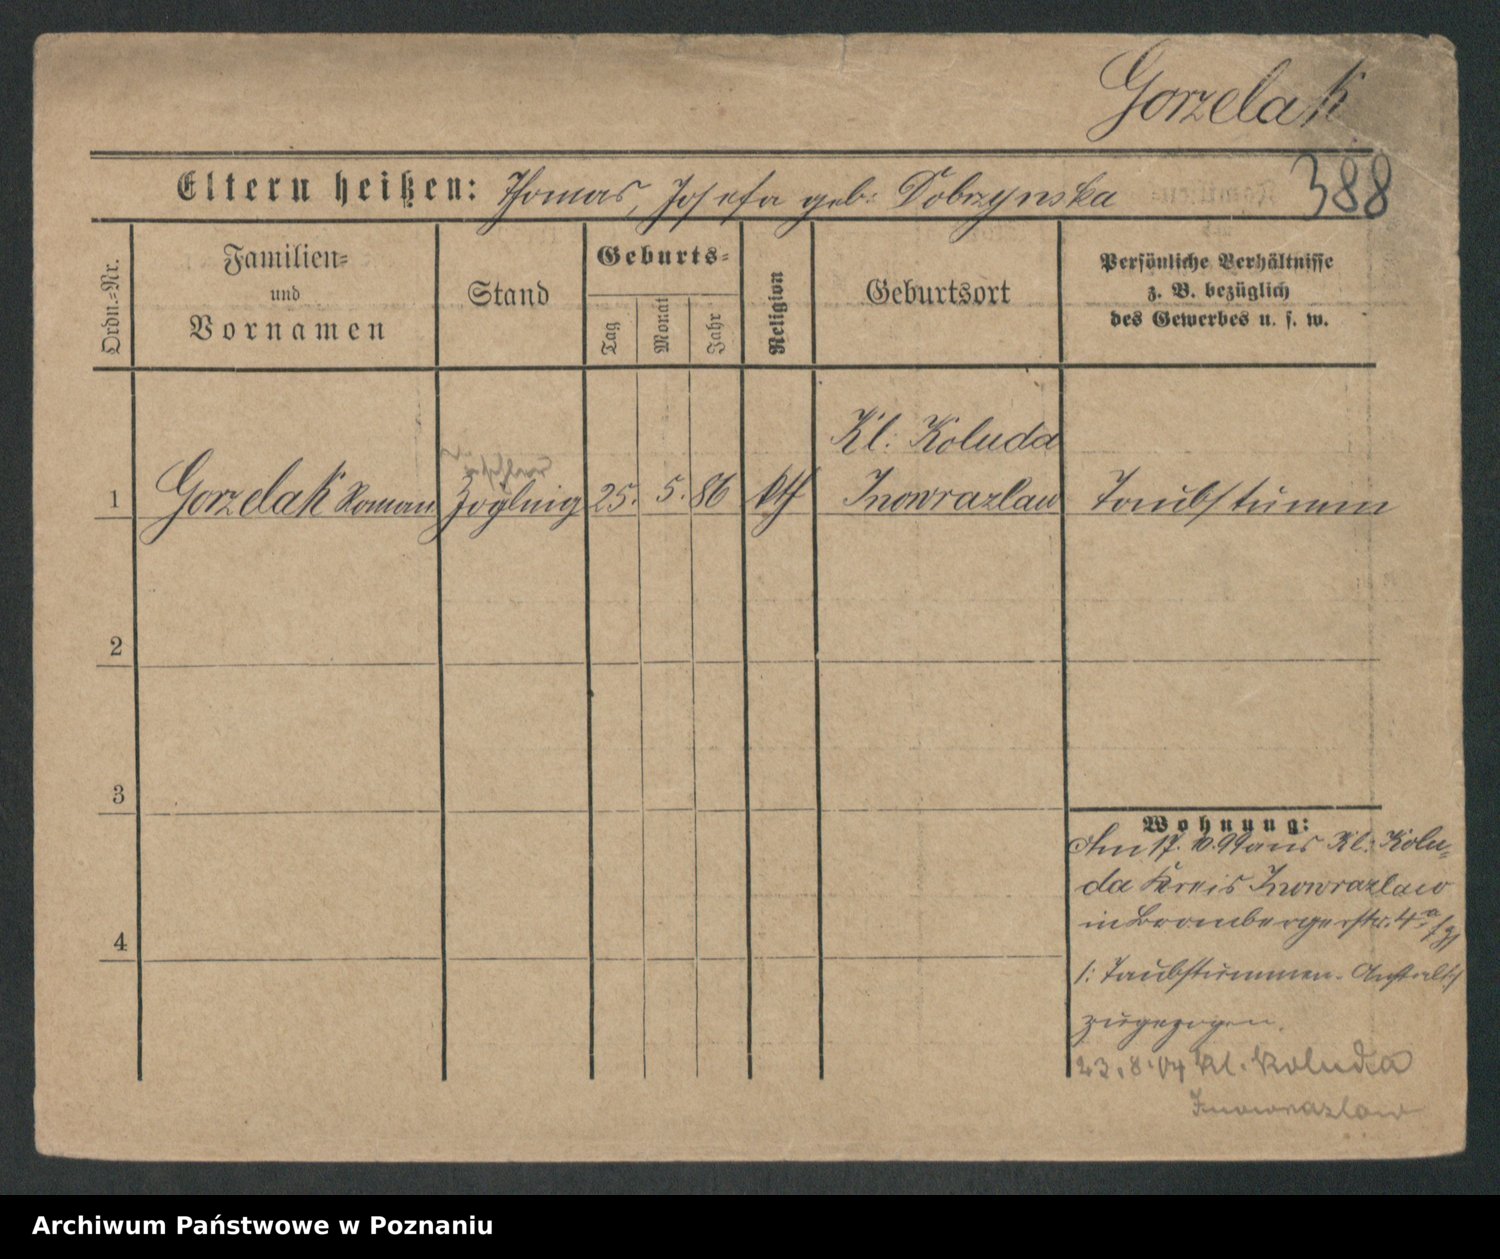 Gorzelak
388
Eltern heißen: Thomas, Josefa geb. Dobrzynska
Ordn.-Nr.
Familien-
und
Vornamen
Stand
Geburts-
Tag
Monat
Jahr
Religion
Geburtsort
Persönliche Verhältnisse
z. B. bezüglich
des Gewerbes u. s. w.
Kl. Koluda
1 Gorzelak Roman Zögling 25. 5. 86 kth Inowrazlaw Taubstumm
2
3
4
Wohnung:
Am 17. 10. 99 aus Kl. Kolu-
da Kreis Inowrazlaw
in Brombergerstr. 4a
/: Taubstummen-Anstalt :/
zugezogen.
23.8.04 Kl. Koluda
Inowrazlaw
Archiwum Państwowe w Poznaniu